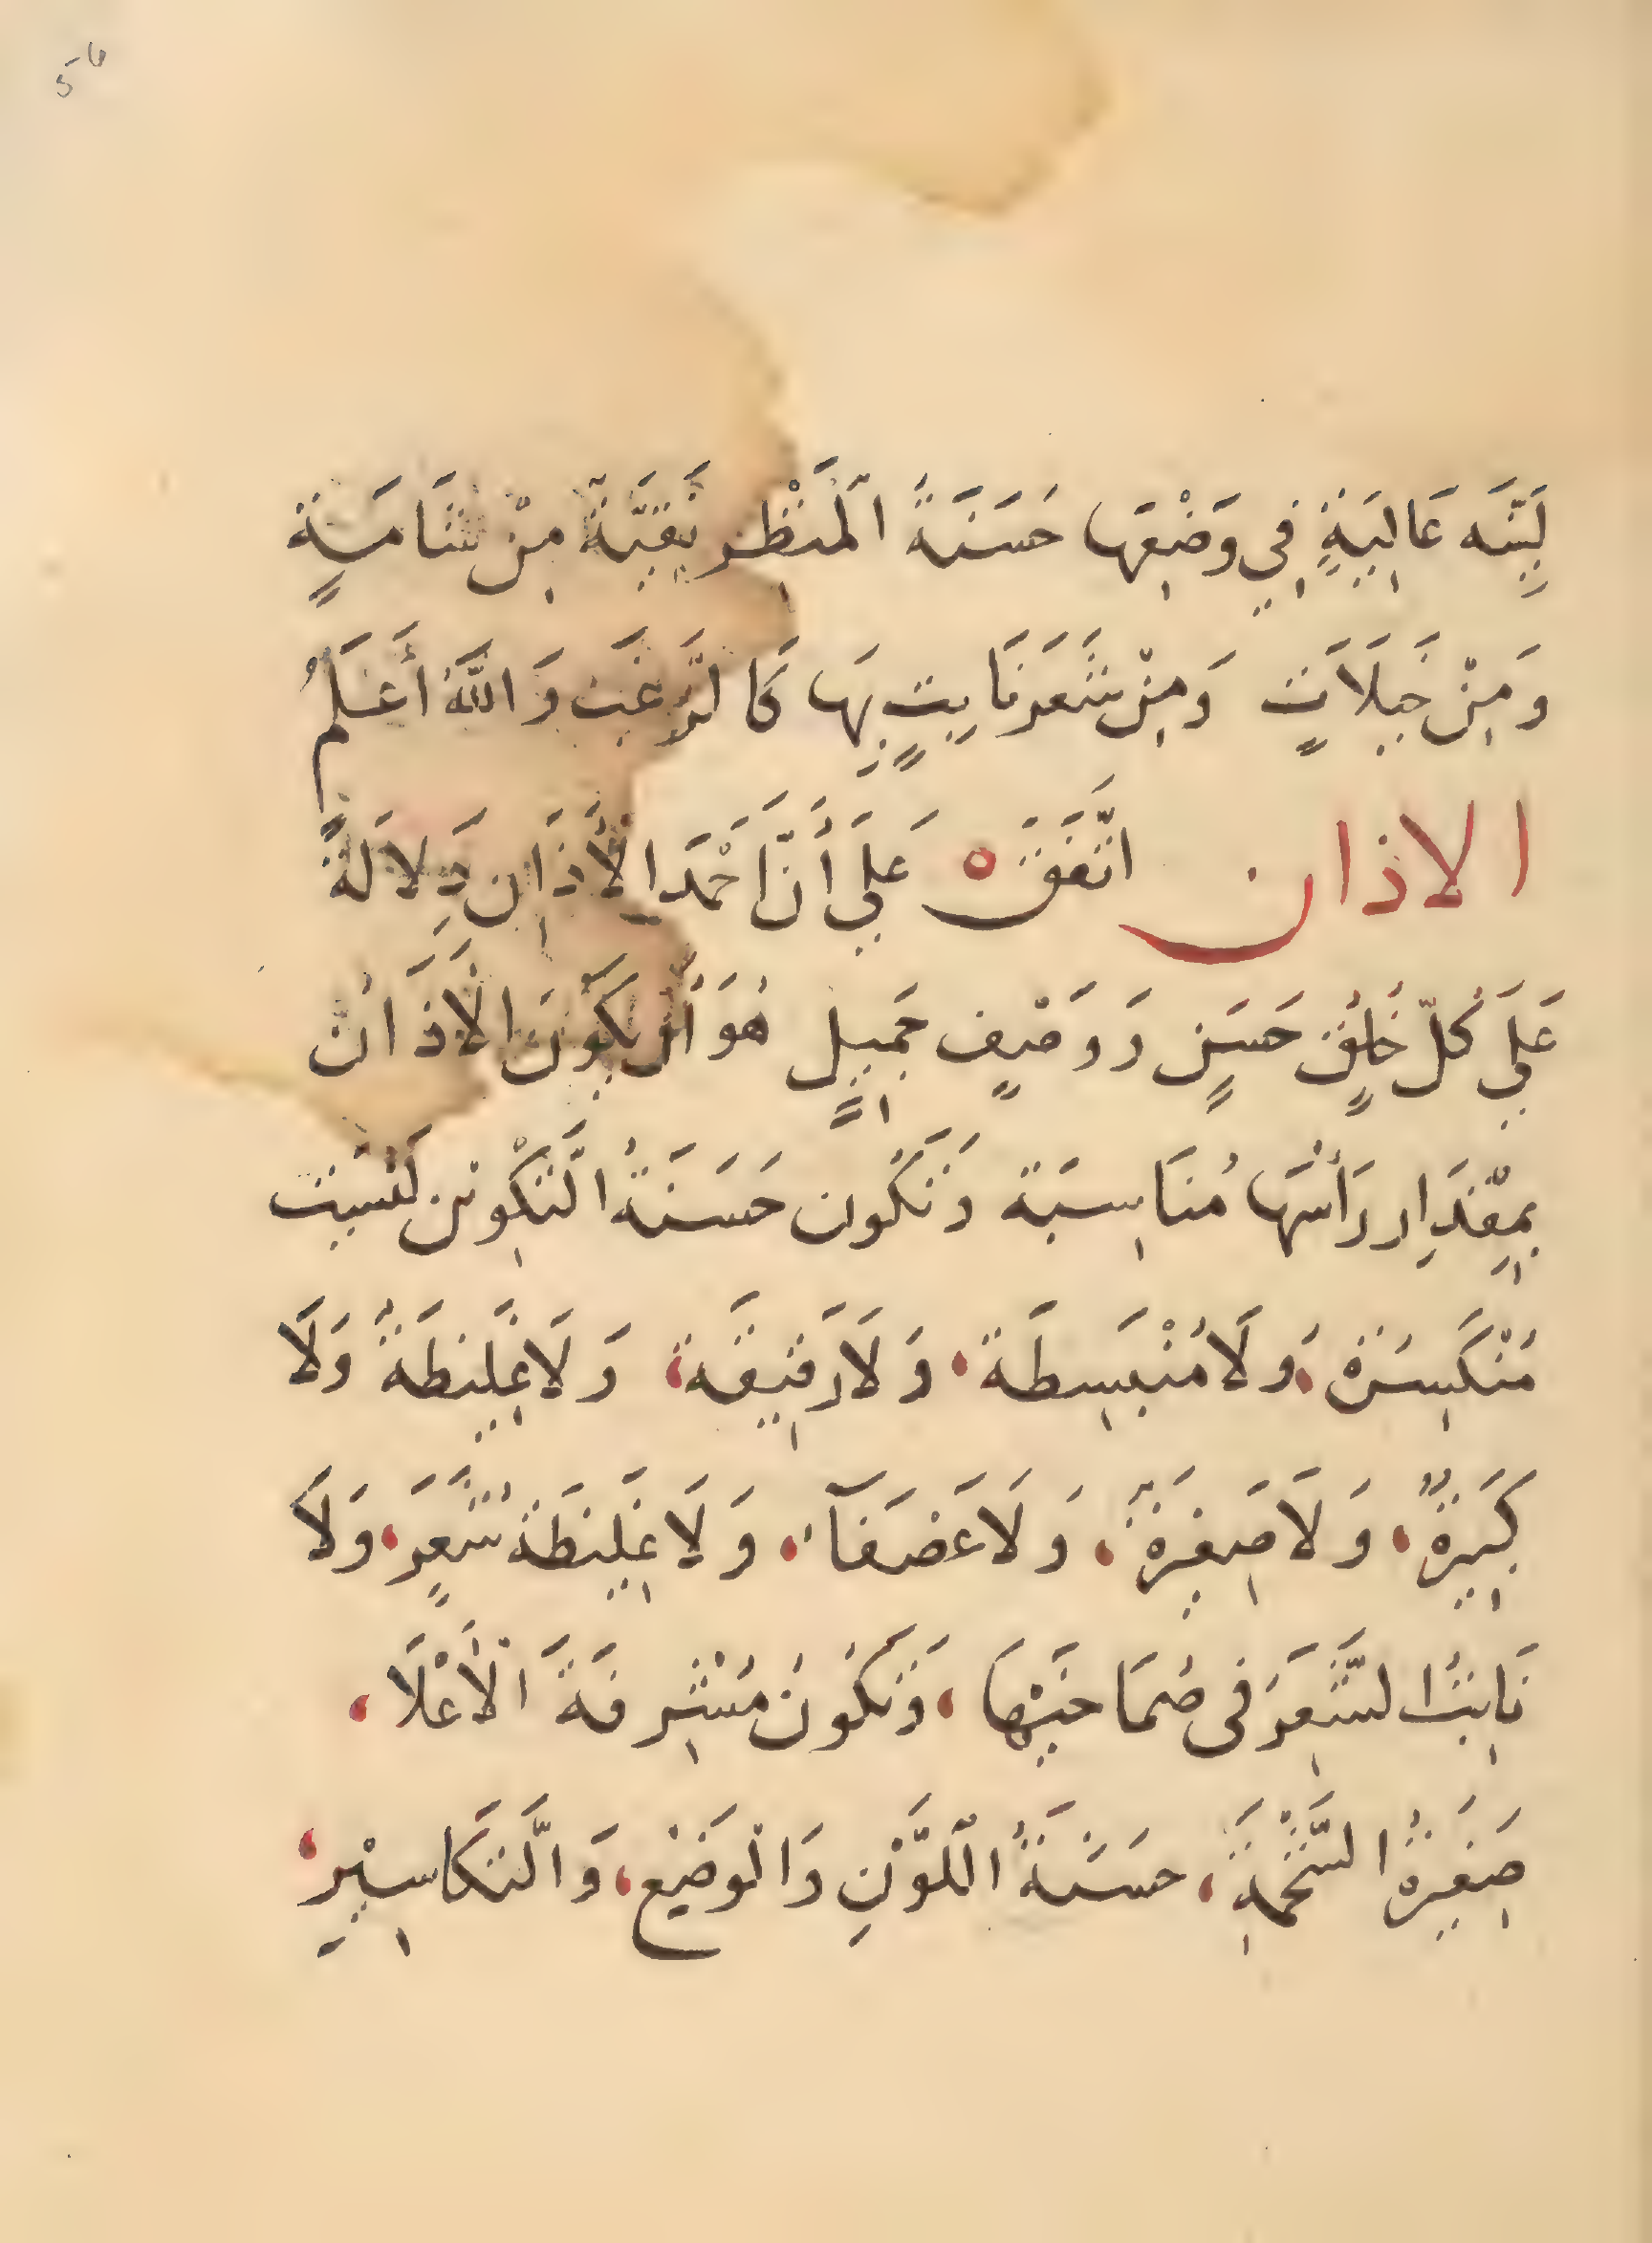 56
لَيِّنَه عَالِيَةٍ فِي وَضْعِهَا حَسَنَةُ الْمَنْظَرِ نَقِيَّةٌ مِنْ شَامَةٍ
وَمِنْ خِيلَاتٍ وَمِنْ شَعَرٍ نَابِتٍ بِهَا كَالزَّغَبِ وَاللَّهُ أَعْلَمُ
الاذان اتَّفَقَ ه عَلَي أَنَّ أَحْمَدَ الأَذَانِ دَلَالَةً
عَلَي كُلِّ خُلُقٍ حَسَنٍ وَوَصْفٍ جَمِيلٍ هُوَ أَنْ يَكُونَ الأَذَانُ
بِمِقْدَارِ رَأْسِهَا مُنَاسِبَة وَتَكُون حَسَنَةُ التَّكْوِين لَيْسَت
مُنْكَسِرَة وَلَا مُنْبَسِطَة وَلَا رَقِيقَة وَلَا غَلِيظَةٌ وَلَا
كَبِيرَةٌ وَلَا صَغِيرَةٌ وَلَا غَضَفَآء وَلَا غَلِيظَة شَعَرٍ وَلَا
نَابِتُ الشَّعَرِ فى صُمَاخَيْهَا وَتَكُونُ مُشْرِفَةَ الْأَعْلَا
صَغِيرَةُ الشَّحْمَةِ حَسَنَةُ اللَّوْنِ وَالْوَضْعِ وَالتَّكَاسِيْرِ